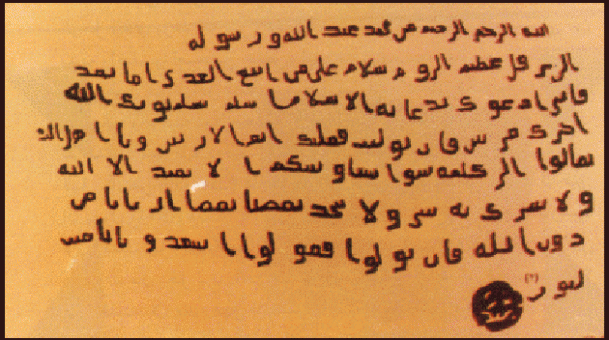 الله الرحمن الرحيم من محمد عبد الله و رسوله
الى هرقل عظيم الروم سلام على من اتبع الهدى اما بعد
فانى ادعوك بدعايه الاسلام اسلم تسلم يوتك الله
اجرك مرتين فان توليت فعليك اثم الاريسين ويا اهل الك
تعالوا الى كلمه سوا بيننا وبينكم ا لا نعبد الا الله
ولا نشرك به شيا ولا يتخذ بعضنا بعضا اربابا من
دون الله فان تولوا فقولوا اشهدو بانا مس
لمون (٢)